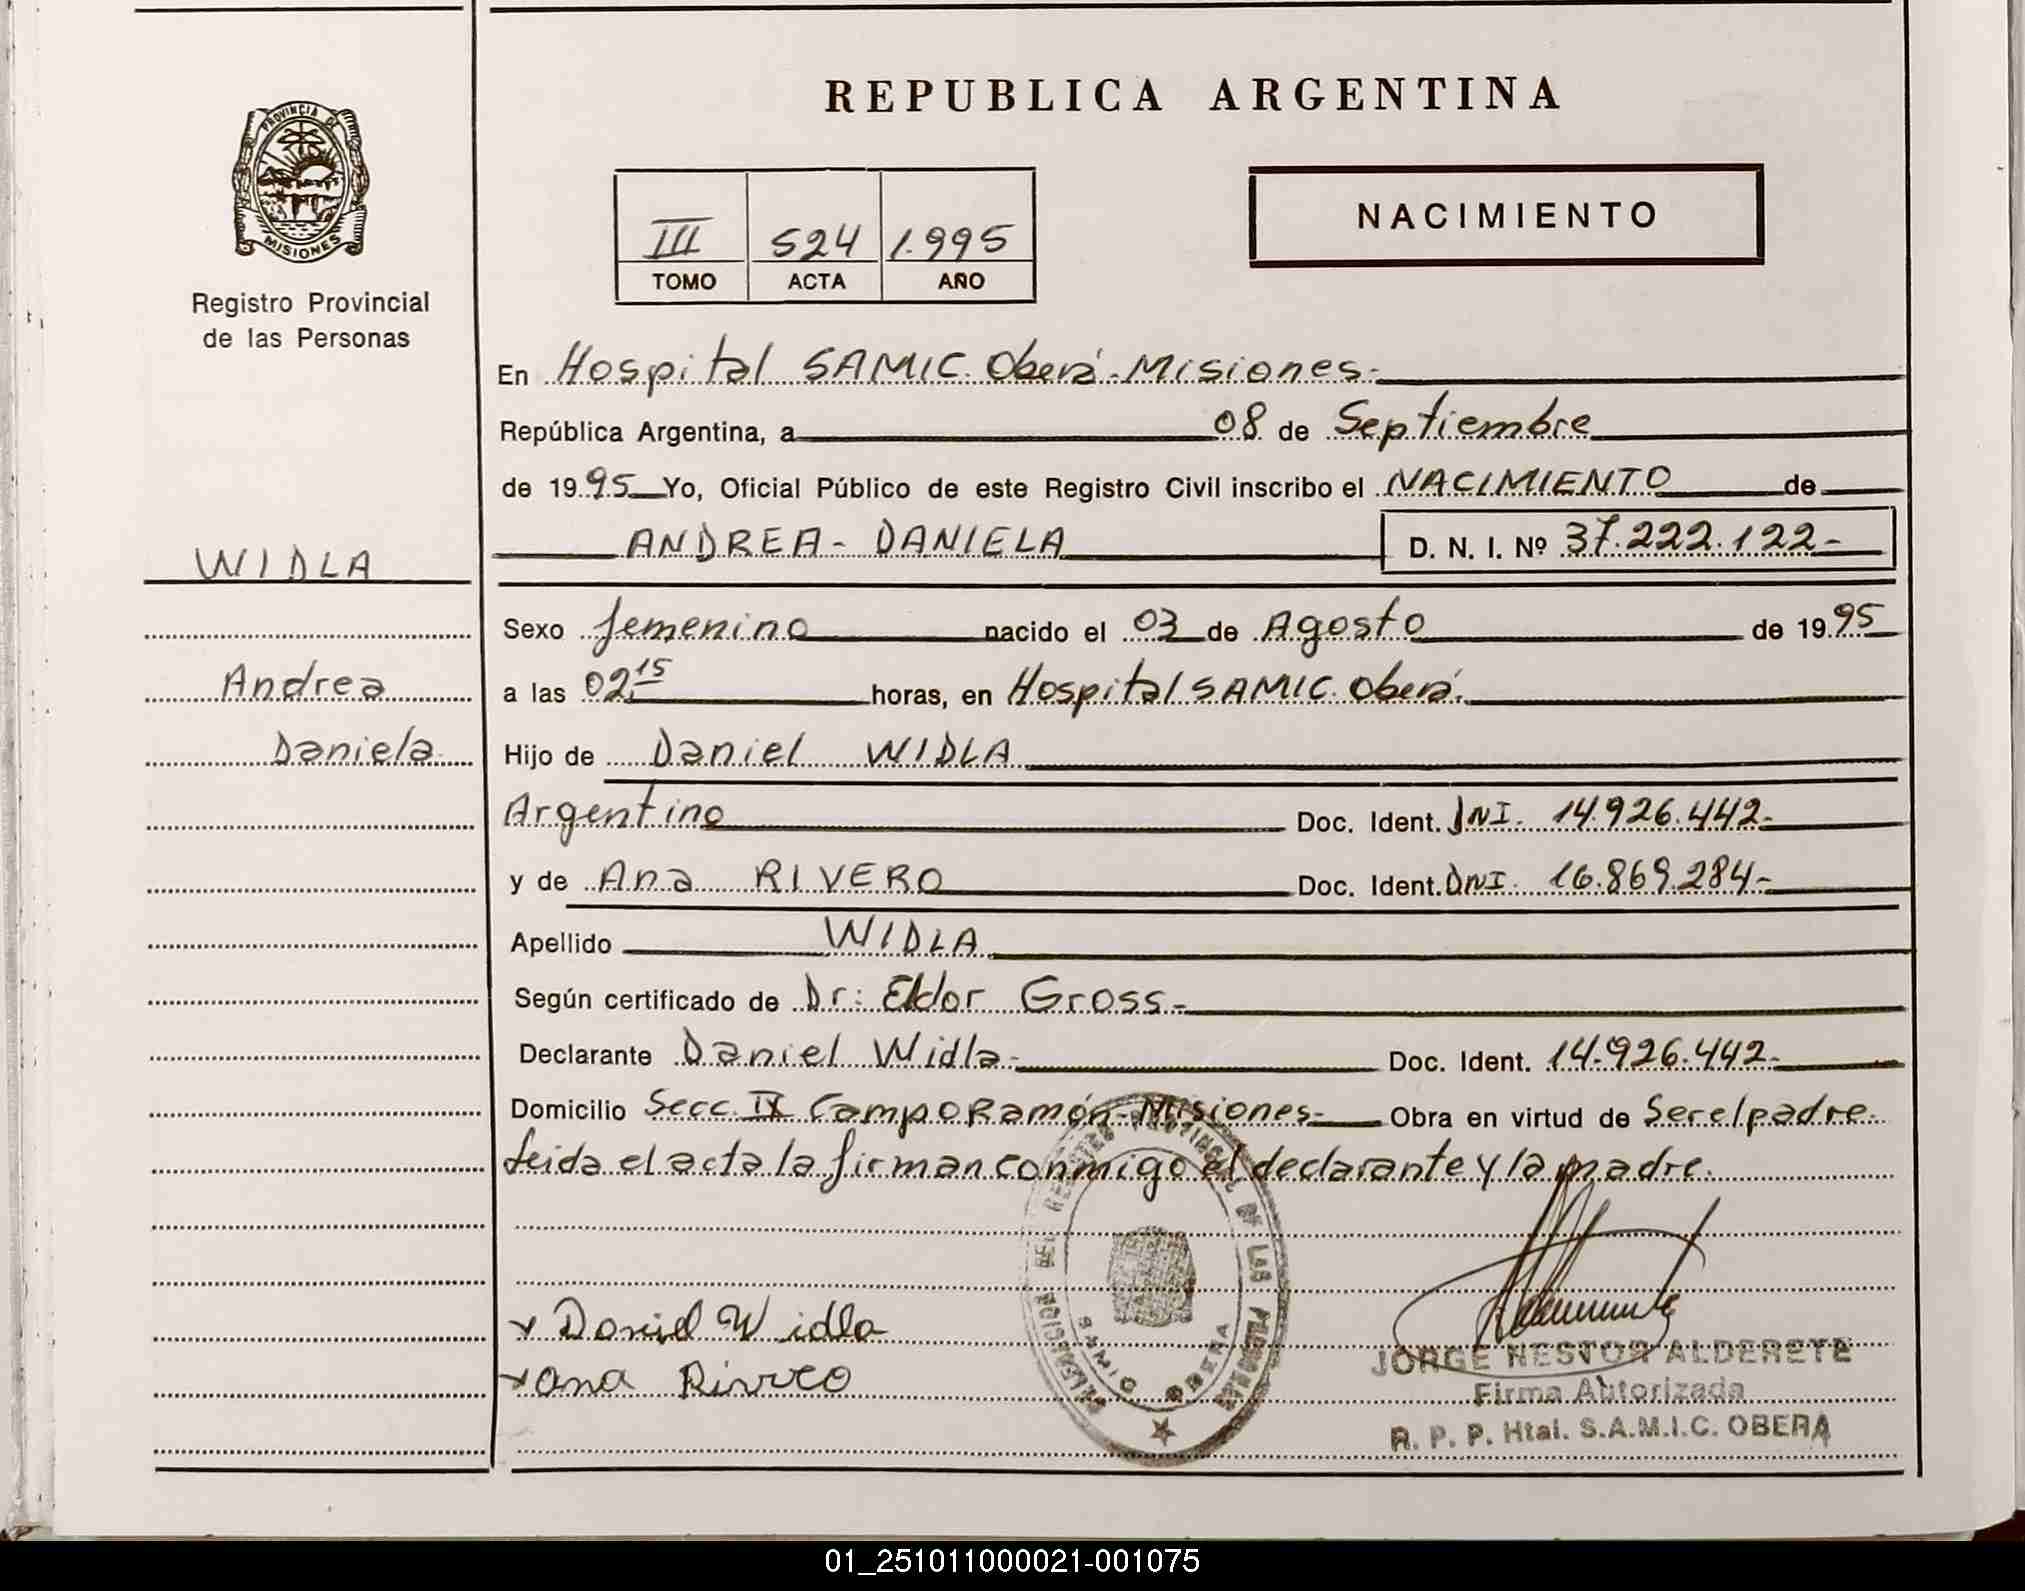 REPUBLICA ARGENTINA
PROVINCIA DE
MISIONES
Registro Provincial
de las Personas
III 524 1.995
TOMO ACTA AÑO
NACIMIENTO
En Hospital SAMIC. Oberá-Misiones.-
República Argentina, a 08 de Septiembre
de 1995 Yo, Oficial Público de este Registro Civil inscribo el NACIMIENTO de
ANDREA-DANIELA D. N. I. Nº 37.222.122-
WIDLA
Sexo femenino nacido el 03 de Agosto de 1995
Andrea
a las 02.15 horas, en Hospital SAMIC. Oberá.
Daniela
Hijo de Daniel WIDLA
Argentino Doc. Ident. DNI. 14.926.442-
y de Ana RIVERO Doc. Ident. DNI. 16.869.284-
Apellido WIDLA
Según certificado de Dr: Eldor Gross-
Declarante Daniel Widla- Doc. Ident. 14.926.442-
Domicilio Secc. IX Campo Ramón-Misiones- Obra en virtud de Ser el padre.
Leida el acta la firman conmigo el declarante y la madre.
DELEGACION DEL REGISTRO PROVINCIAL DE LAS PERSONAS
SAMIC OBERA
x Daniel Widla
x Ana Rivero
JORGE NESTOR ALDERETE
Firma Autorizada
R. P. P. Htal. S.A.M.I.C. OBERA
01_251011000021-001075